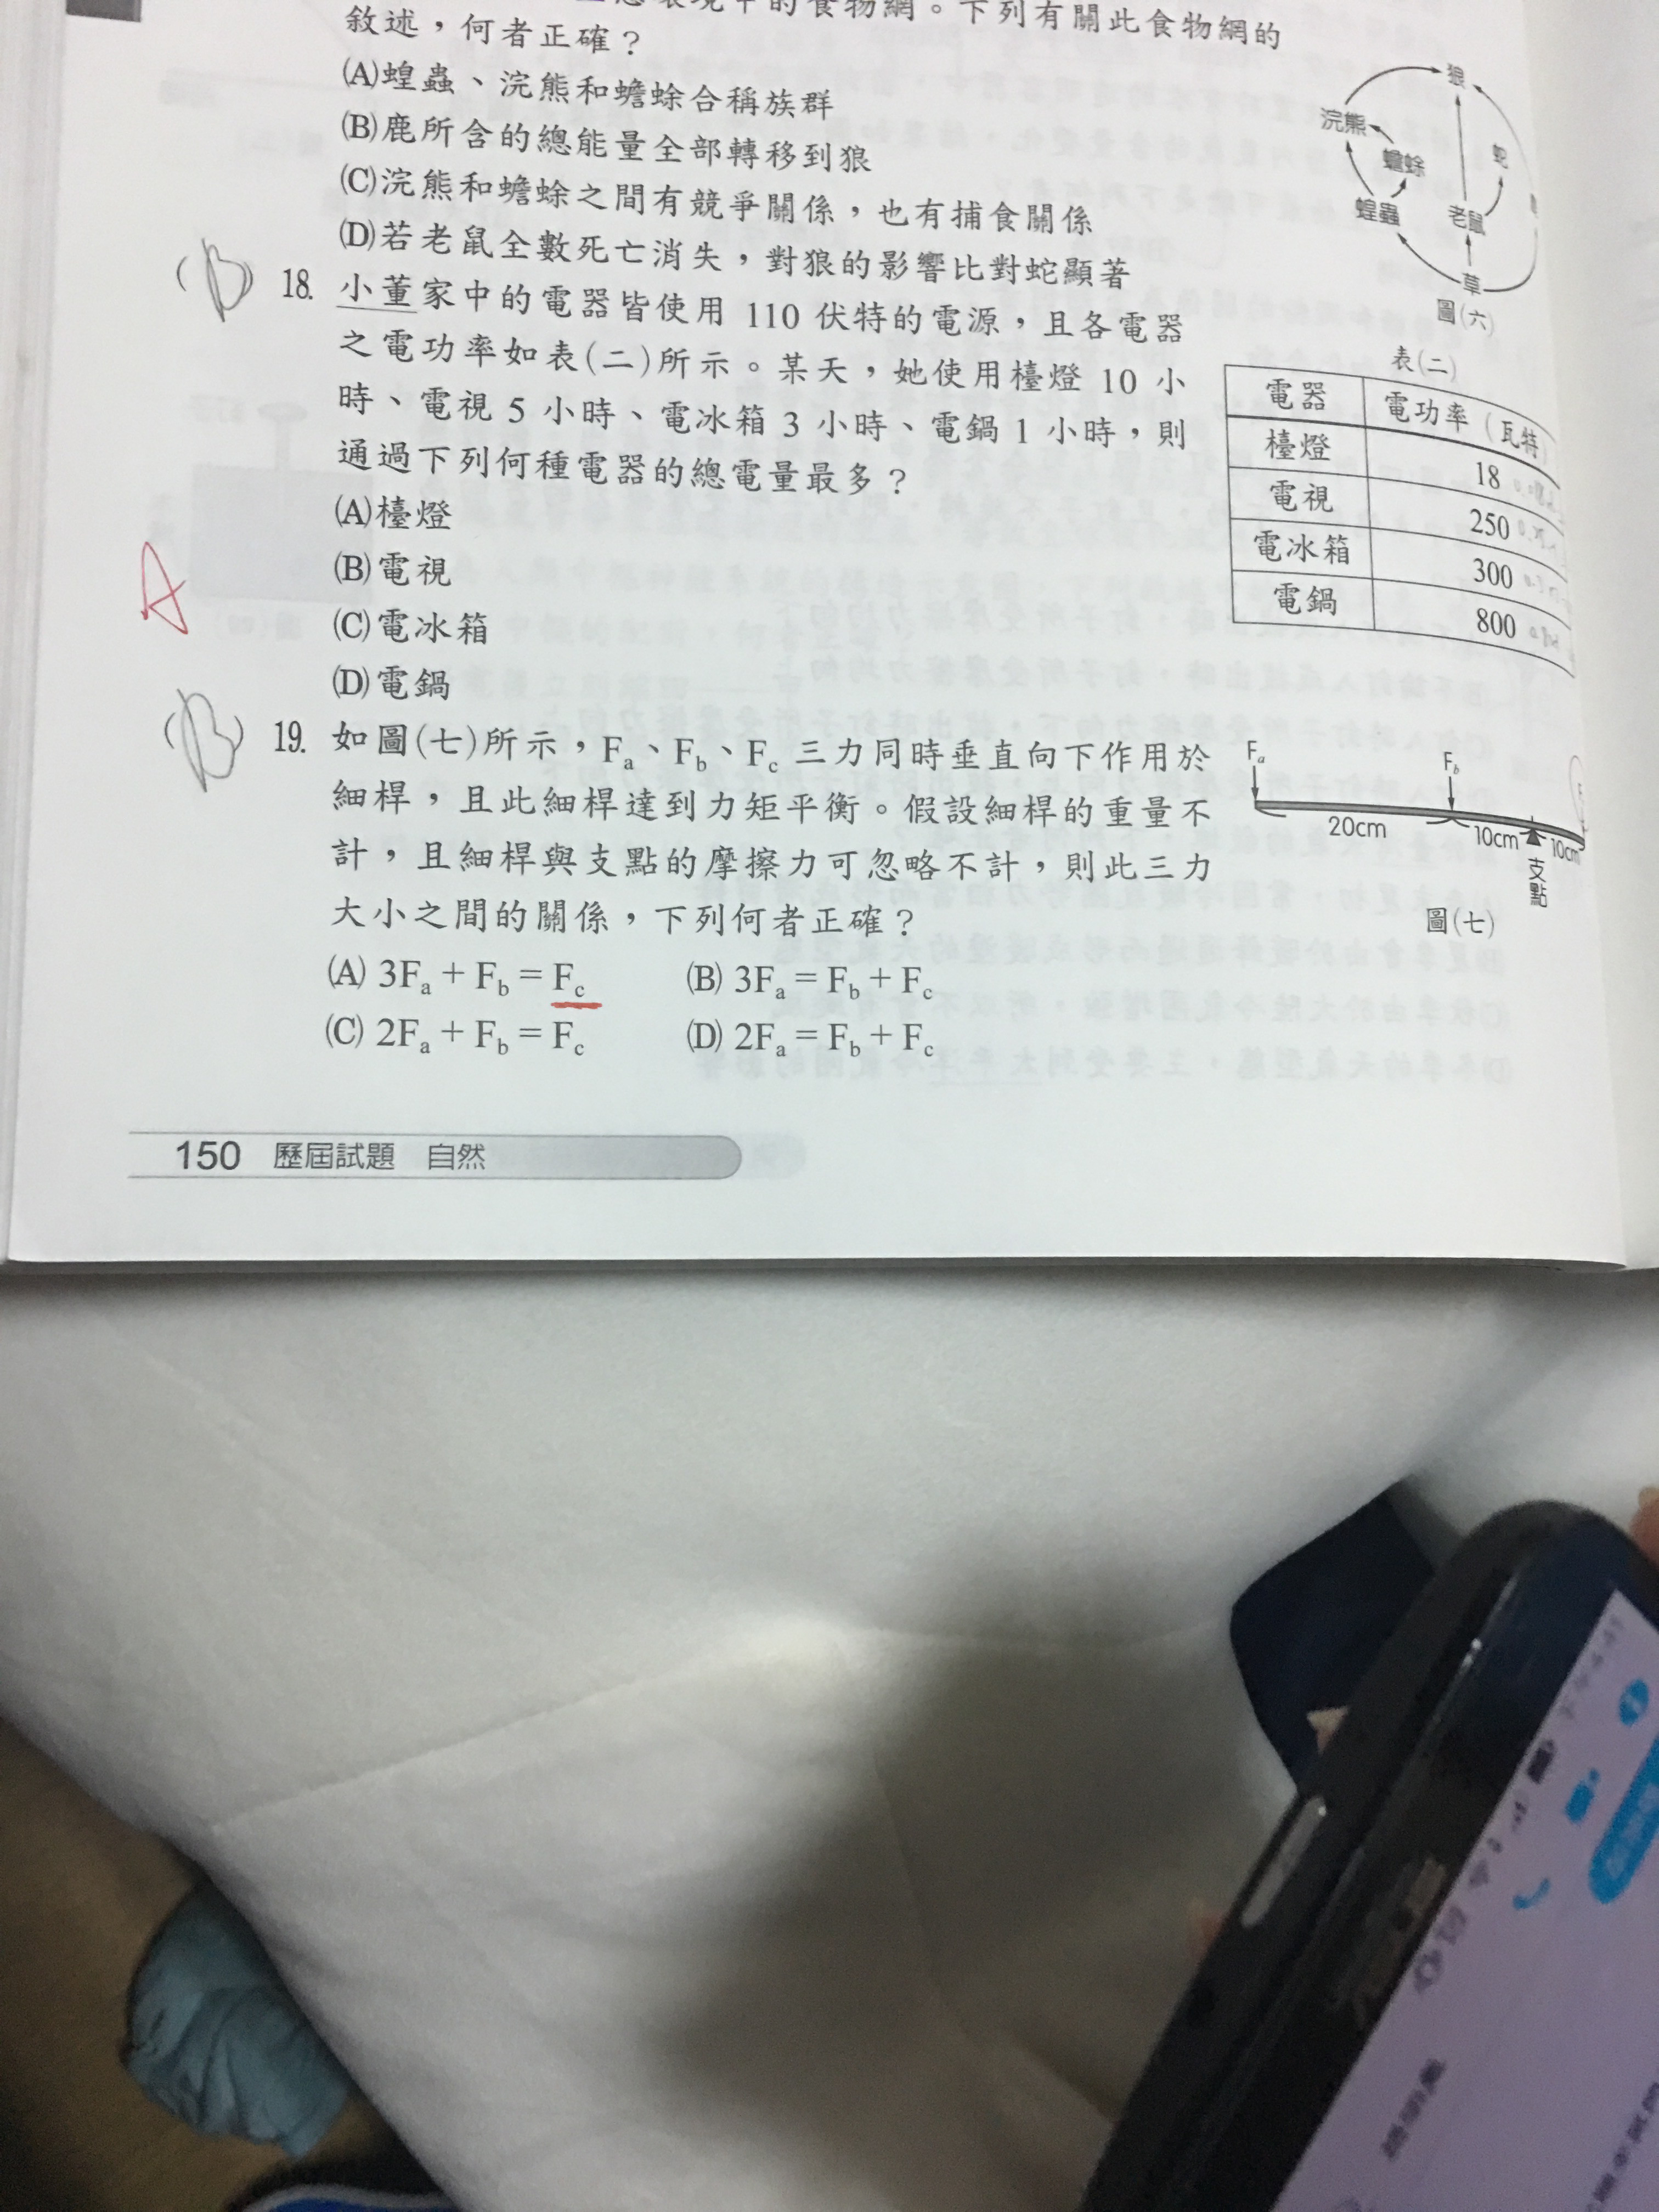 的食物網。下列有關此食物網的
敘述，何者正確？
(A)蝗蟲、浣熊和蟾蜍合稱族群
(B)鹿所含的總能量全部轉移到狼
(C)浣熊和蟾蜍之間有競爭關係，也有捕食關係
(D)若老鼠全數死亡消失，對狼的影響比對蛇顯著
狼
浣熊
蟾蜍
蛇
蝗蟲
老鼠
草
圖(六)
(B) 18. 小董家中的電器皆使用 110 伏特的電源，且各電器
之電功率如表(二)所示。某天，她使用檯燈 10 小
時、電視 5 小時、電冰箱 3 小時、電鍋 1 小時，則
通過下列何種電器的總電量最多？
(A)檯燈
(B)電視
(C)電冰箱
(D)電鍋
表(二)
電器 電功率（瓦特）
檯燈 18
電視 250
電冰箱 300
電鍋 800
A
(B) 19. 如圖(七)所示，Fa、Fb、Fc 三力同時垂直向下作用於
細桿，且此細桿達到力矩平衡。假設細桿的重量不
計，且細桿與支點的摩擦力可忽略不計，則此三力
大小之間的關係，下列何者正確？
(A) 3Fa + Fb = Fc (B) 3Fa = Fb + Fc
(C) 2Fa + Fb = Fc (D) 2Fa = Fb + Fc
Fa Fb
20cm 10cm 10cm
支點
圖(七)
150 歷屆試題 自然